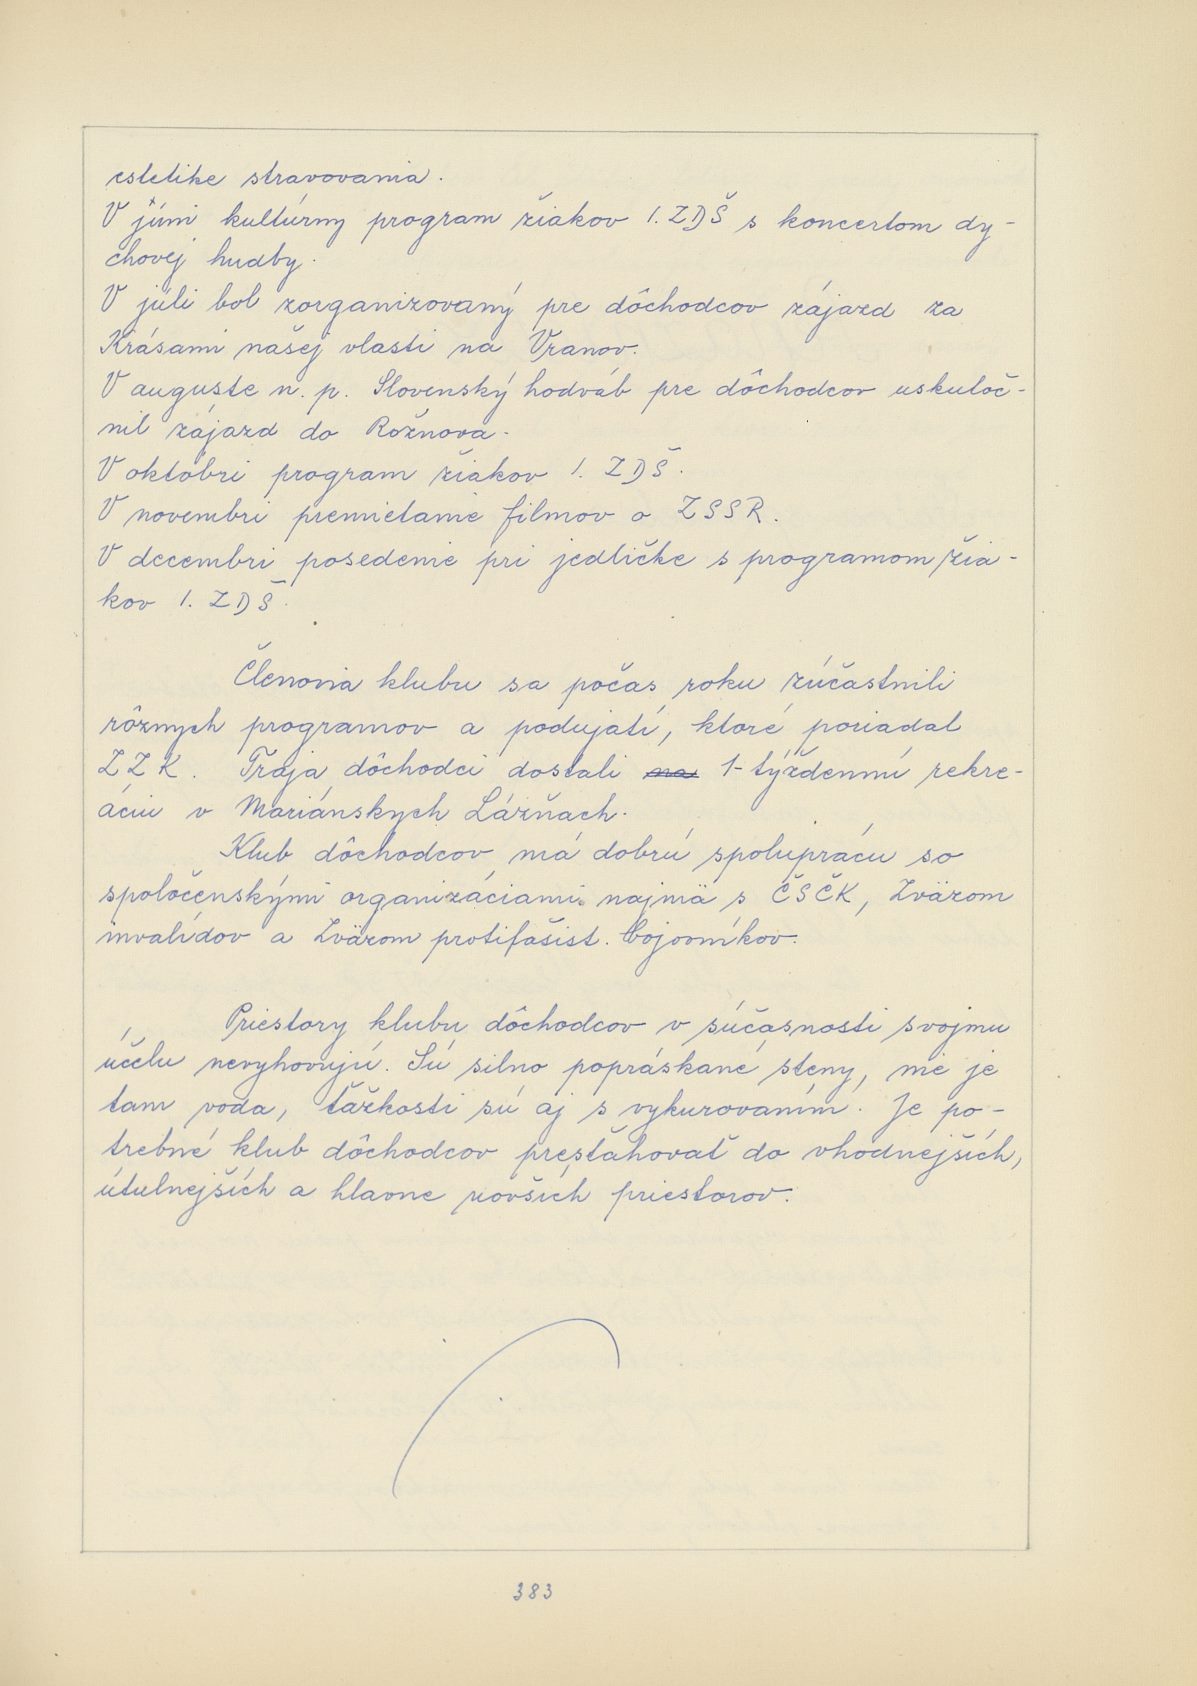 estetike stravovania.
V júni kultúrny program žiakov 1. ZDŠ s koncertom dy-
chovej hudby.
V júli bol zorganizovaný pre dôchodcov zájazd za
Krásami našej vlasti na Vranov.
V auguste n. p. Slovenský hodváb pre dôchodcov uskutoč-
nil zájazd do Rožnova.
V októbri program žiakov 1. ZDŠ.
V novembri premietanie filmov o ZSSR.
V decembri posedenie pri jedličke s programom žia-
kov 1. ZDŠ.
Členovia klubu sa počas roku zúčastnili
rôznych programov a podujatí, ktoré poriadal
ZZK. Traja dôchodci dostali na 1-týždennú rekre-
áciu v Mariánskych Lázňach.
Klub dôchodcov má dobrú spoluprácu so
spoločenskými organizáciami najmä s ČSČK, Zväzom
invalidov a Zväzom protifašist. bojovníkov.
Priestory klubu dôchodcov v súčasnosti svojmu
účelu nevyhovujú. Sú silno popráskané steny, nie je
tam voda, ťažkosti sú aj s vykurovaním. Je po-
trebné klub dôchodcov presťahovať do vhodnejších,
útulnejších a hlavne novších priestorov.
383